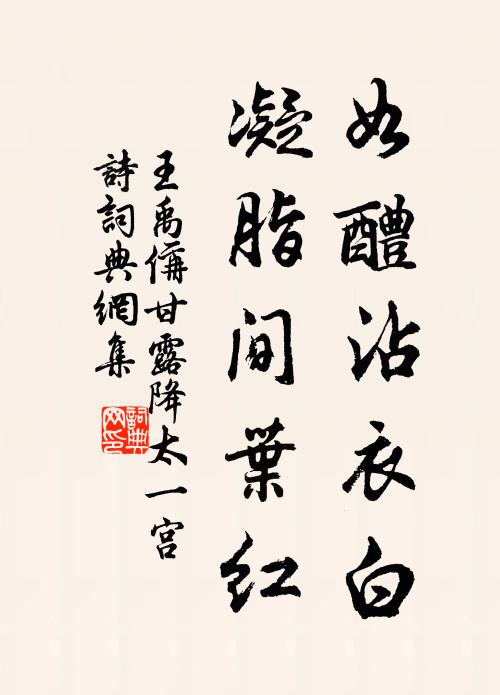 如醴沾衣白
凝脂间葉红
王禹偁甘露降太一宫
詩詞典網集
詞典网印